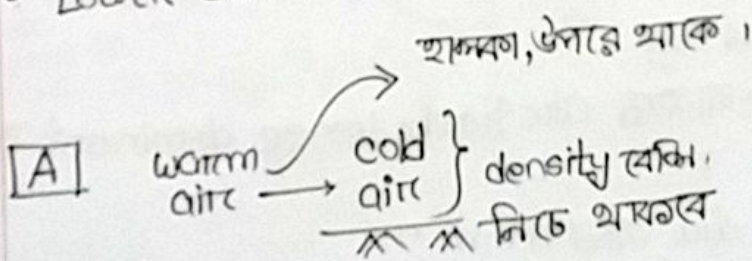 হালকা, উপরে থাকে ।
A warm air → cold air } density বেশি,
নিচে থাকবে